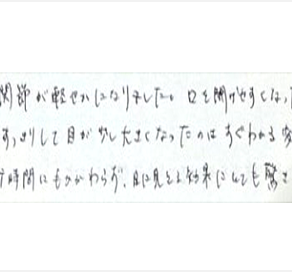 関節が軽やかになりました。口を開けやすくなっ
すっきりして目が少し大きくなったのはすぐわかる変
時間にもかかわらず、目に見える効果にとても驚き